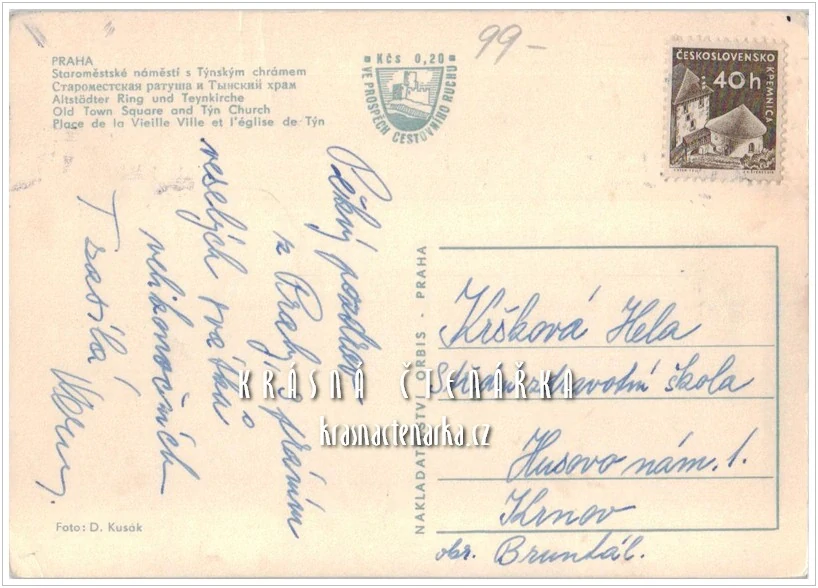 PRAHA
Staroměstské náměstí s Týnským chrámem
Староместская ратуша и Тынский храм
Altstädter Ring und Teynkirche
Old Town Square and Týn Church
Place de la Vieille Ville et l'église de Týn
Kčs 0,20
VE PROSPĚCH CESTOVNÍHO RUCHU
99-
ČESKOSLOVENSKO
40 h
KREMNICA
Pěkný pozdrav
z Prahy s přáním
veselých svátků
velikonočních
zasílá
KRÁSNÁ ČTENÁŘKA
krasnactenarka.cz
NAKLADATELSTVÍ ORBIS - PRAHA
Kršková Hela
Střední zdravotní škola
Husovo nám. 1.
Krnov
okr. Bruntál.
Foto: D. Kusák